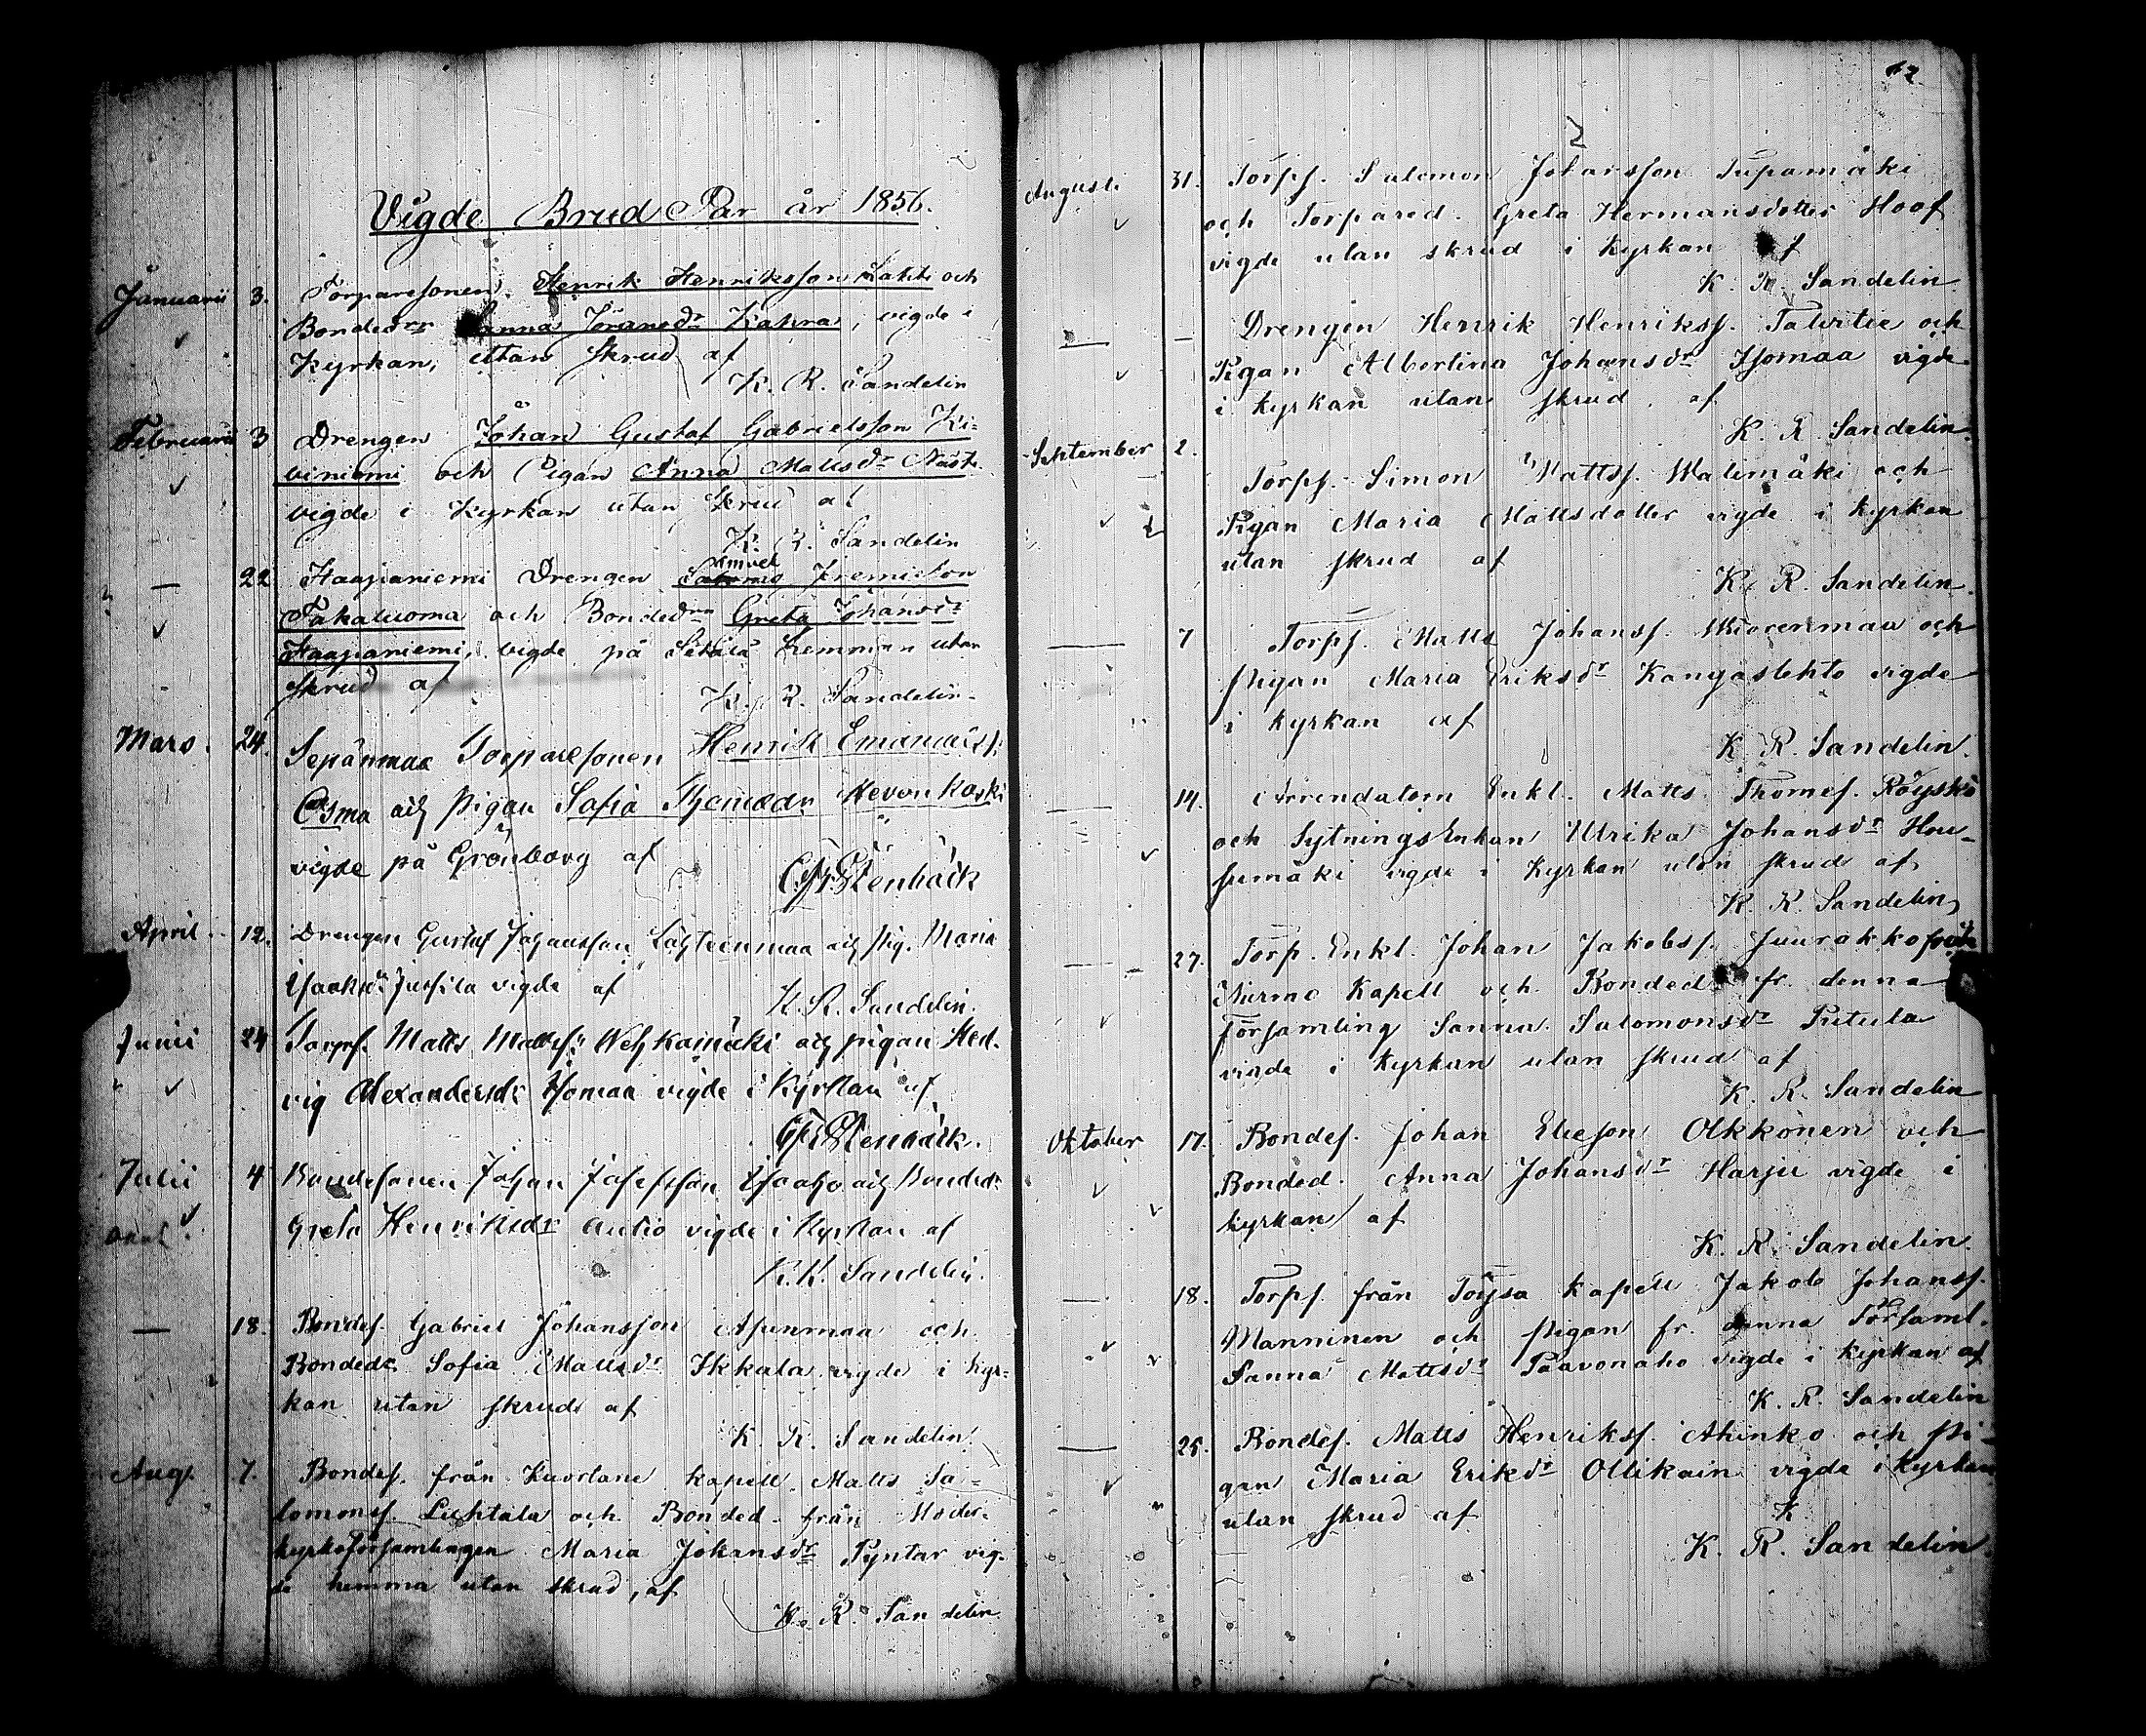 Vigde Brud Par år 1856.
Januarii 3. Torparesonen Henrik Henriksson Lahti och
Bondedrn Sanna Jöransdr Kahra, vigde i
Kyrkan, uttan skrud af
K. R. Sandelin
Februarii 3 Drengen Johan Gustaf Gabrielsson Ki-
viniemi och Pigan Anna Mattsdr Näsi
vigde i Kyrkan utan skrud af
K. R. Sandelin
— 22 Haapaniemi Drengen Samuel Jremieson
Takaluoma och Bondedrn Greta Johansdr
Haapaniemi, vigde på Setälä Hemman utan
skrud af
K. R. Sandelin
Mars. 24. Sepänmaa Torparesonen Henrik Emanuelss.
Osma och pigan Sofia Thomædr Hevonkoski
vigde på Grönborg af
Stenbäck
April 12. Drengen Gustaf Johansson Lähteenmaa och pig. Maria
Isaksdr Jussila vigde af
K. R. Sandelin.
Junii 24 Torps. Matts Mattss. Wehkamäki och pigan Hed-
vig Alexandersdr Isomaa vigde i Kyrkan af
Stenbäck.
Julii 4 Bondesonen Johan Josefsson Isoaho och Bondedr
Greta Henriksdr Autio vigde i Kyrkan af
K. R. Sandelin.
— 18. Bondes. Gabriel Johansson Asunmaa och
Bondedr Sofia Mattsdr Ikkala vigde i kyr-
kan utan skrud af
K. R. Sandelin.
Aug. 7. Bondes. från Kuortane kapell Matts Sa-
lomons. Luhtala och Bonded. från Moder-
kyrkoförsamlingen Maria Johansdr Pyntar vig-
de hemma utan skrud, af
K. R. Sandelin.
12
Augusti 31. Torps. Salomon Johansson Tupamäki
och Torpared. Greta Hermansdotter Hoof
vigde utan skrud i Kyrkan af
K. R. Sandelin
— — Drengen Henrik Henrikss. Talvitie och
Pigan Albertina Johansdr Isomaa vigde
i kyrkan utan skrud af
K. R. Sandelin.
September 2. Torps. Simon Mattss. Walimäki och
Pigan Maria Mattsdotter vigde i kyrkan
utan skrud af
K. R. Sandelin.
— 7 Torps. Matts Johanss. och
pigan Maria Eriksdr Kangaslehto vigde
i kyrkan af
K. R. Sandelin.
— 14. Arrendatorn Enkl. Matts Thomes. Röyskö
och Sytningsenkan Ulrika Johansdr Hou-
sumäki vigde i Kyrkan utan skrud af
K. R. Sandelin
— 27. Torp. Enkl. Johan Jakobss. Juurakko från
Nurmo Kapell och Bonded fr. denna
församling Sanna Salomonsdr Pitula
vigde i Kyrkan utan skrud af
K. R. Sandelin
Oktober 17. Bondes. Johan Elieson Olkkonen och
Bonded. Anna Johansdr Harju vigde i
kyrkan af
K. R. Sandelin.
— 18. Torps. från Töysa kapell Jakob Johanss.
Manninen och pigan fr. denna Församl.
Sanna Mattsdr Paavonaho vigde i kyrkan af
K. R. Sandelin
— 25. Bondes. Matts Henrikss. Ahinko och pi-
gan Maria Eriksdr Ollikain vigde i Kyrkan
utan skrud af
K
K. R. Sandelin.